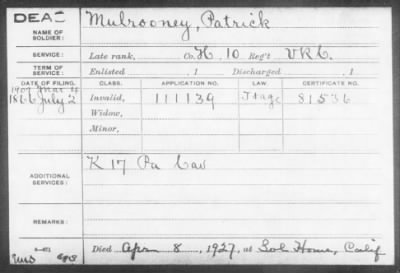 DEAD
NAME OF SOLDIER: Mulrooney, Patrick
SERVICE: Late rank, Co. H, 10 Reg't V R C.
TERM OF SERVICE: Enlisted , 1 Discharged , 1
DATE OF FILING. CLASS. APPLICATION NO. LAW. CERTIFICATE NO.
1907 Mar 4
1866 July 2 Invalid, 111139 81536
Widow,
Minor,
ADDITIONAL SERVICES: K 17 Pa Cav
REMARKS:
Died Apr 8, 1927, at Sol. Home, Calif